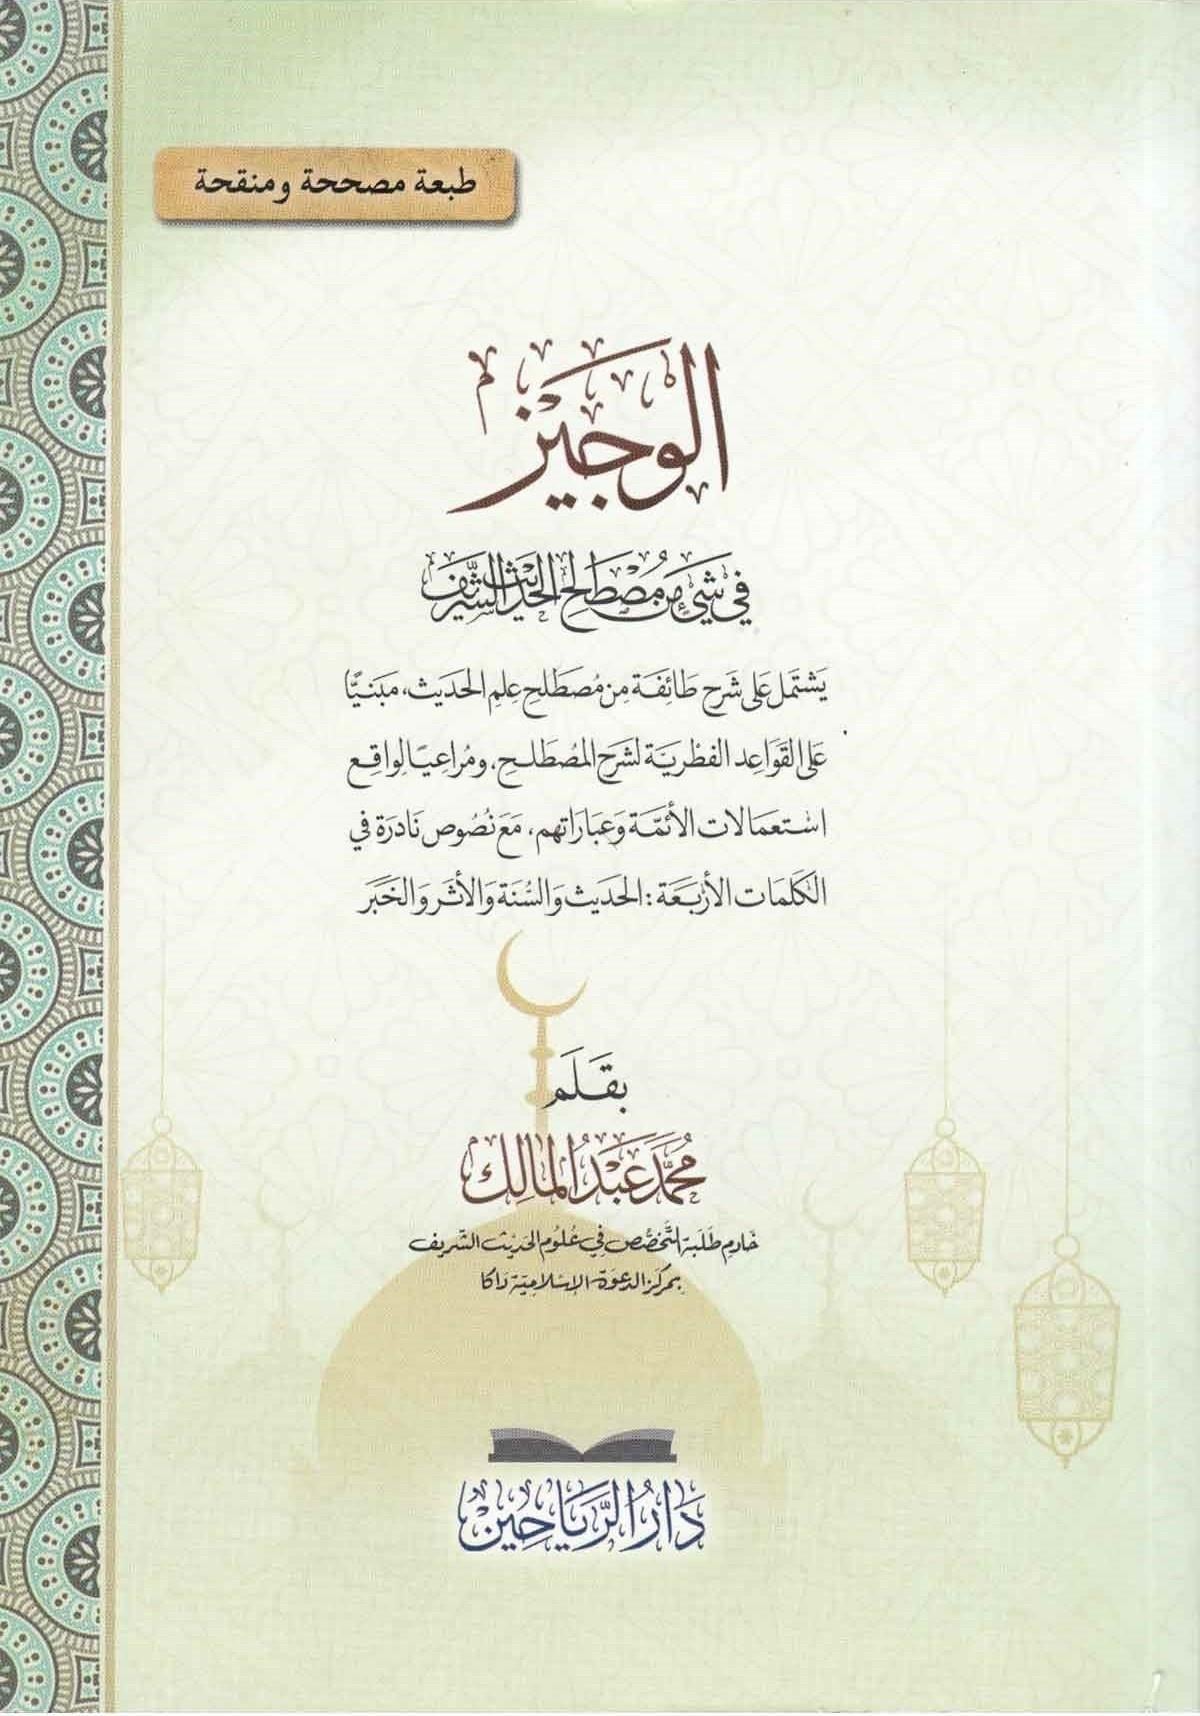 طبعة مصححة ومنقحة
الوجيز
في شيء من مصطلح الحديث الشريف
يشتمل على شرح طائفة من مصطلح علم الحديث، مبنيًّا
على القواعد الفطرية لشرح المصطلح، ومراعيًا لواقع
استعمالات الأئمة وعباراتهم، مع نصوص نادرة في
الكلمات الأربعة: الحديث والسنة والأثر والخبر
بقلم
محمد عبد المالك
خادم طلبة التخصص في علوم الحديث الشريف
بمركز الدعوة الإسلامية داكا
دار الرياحين